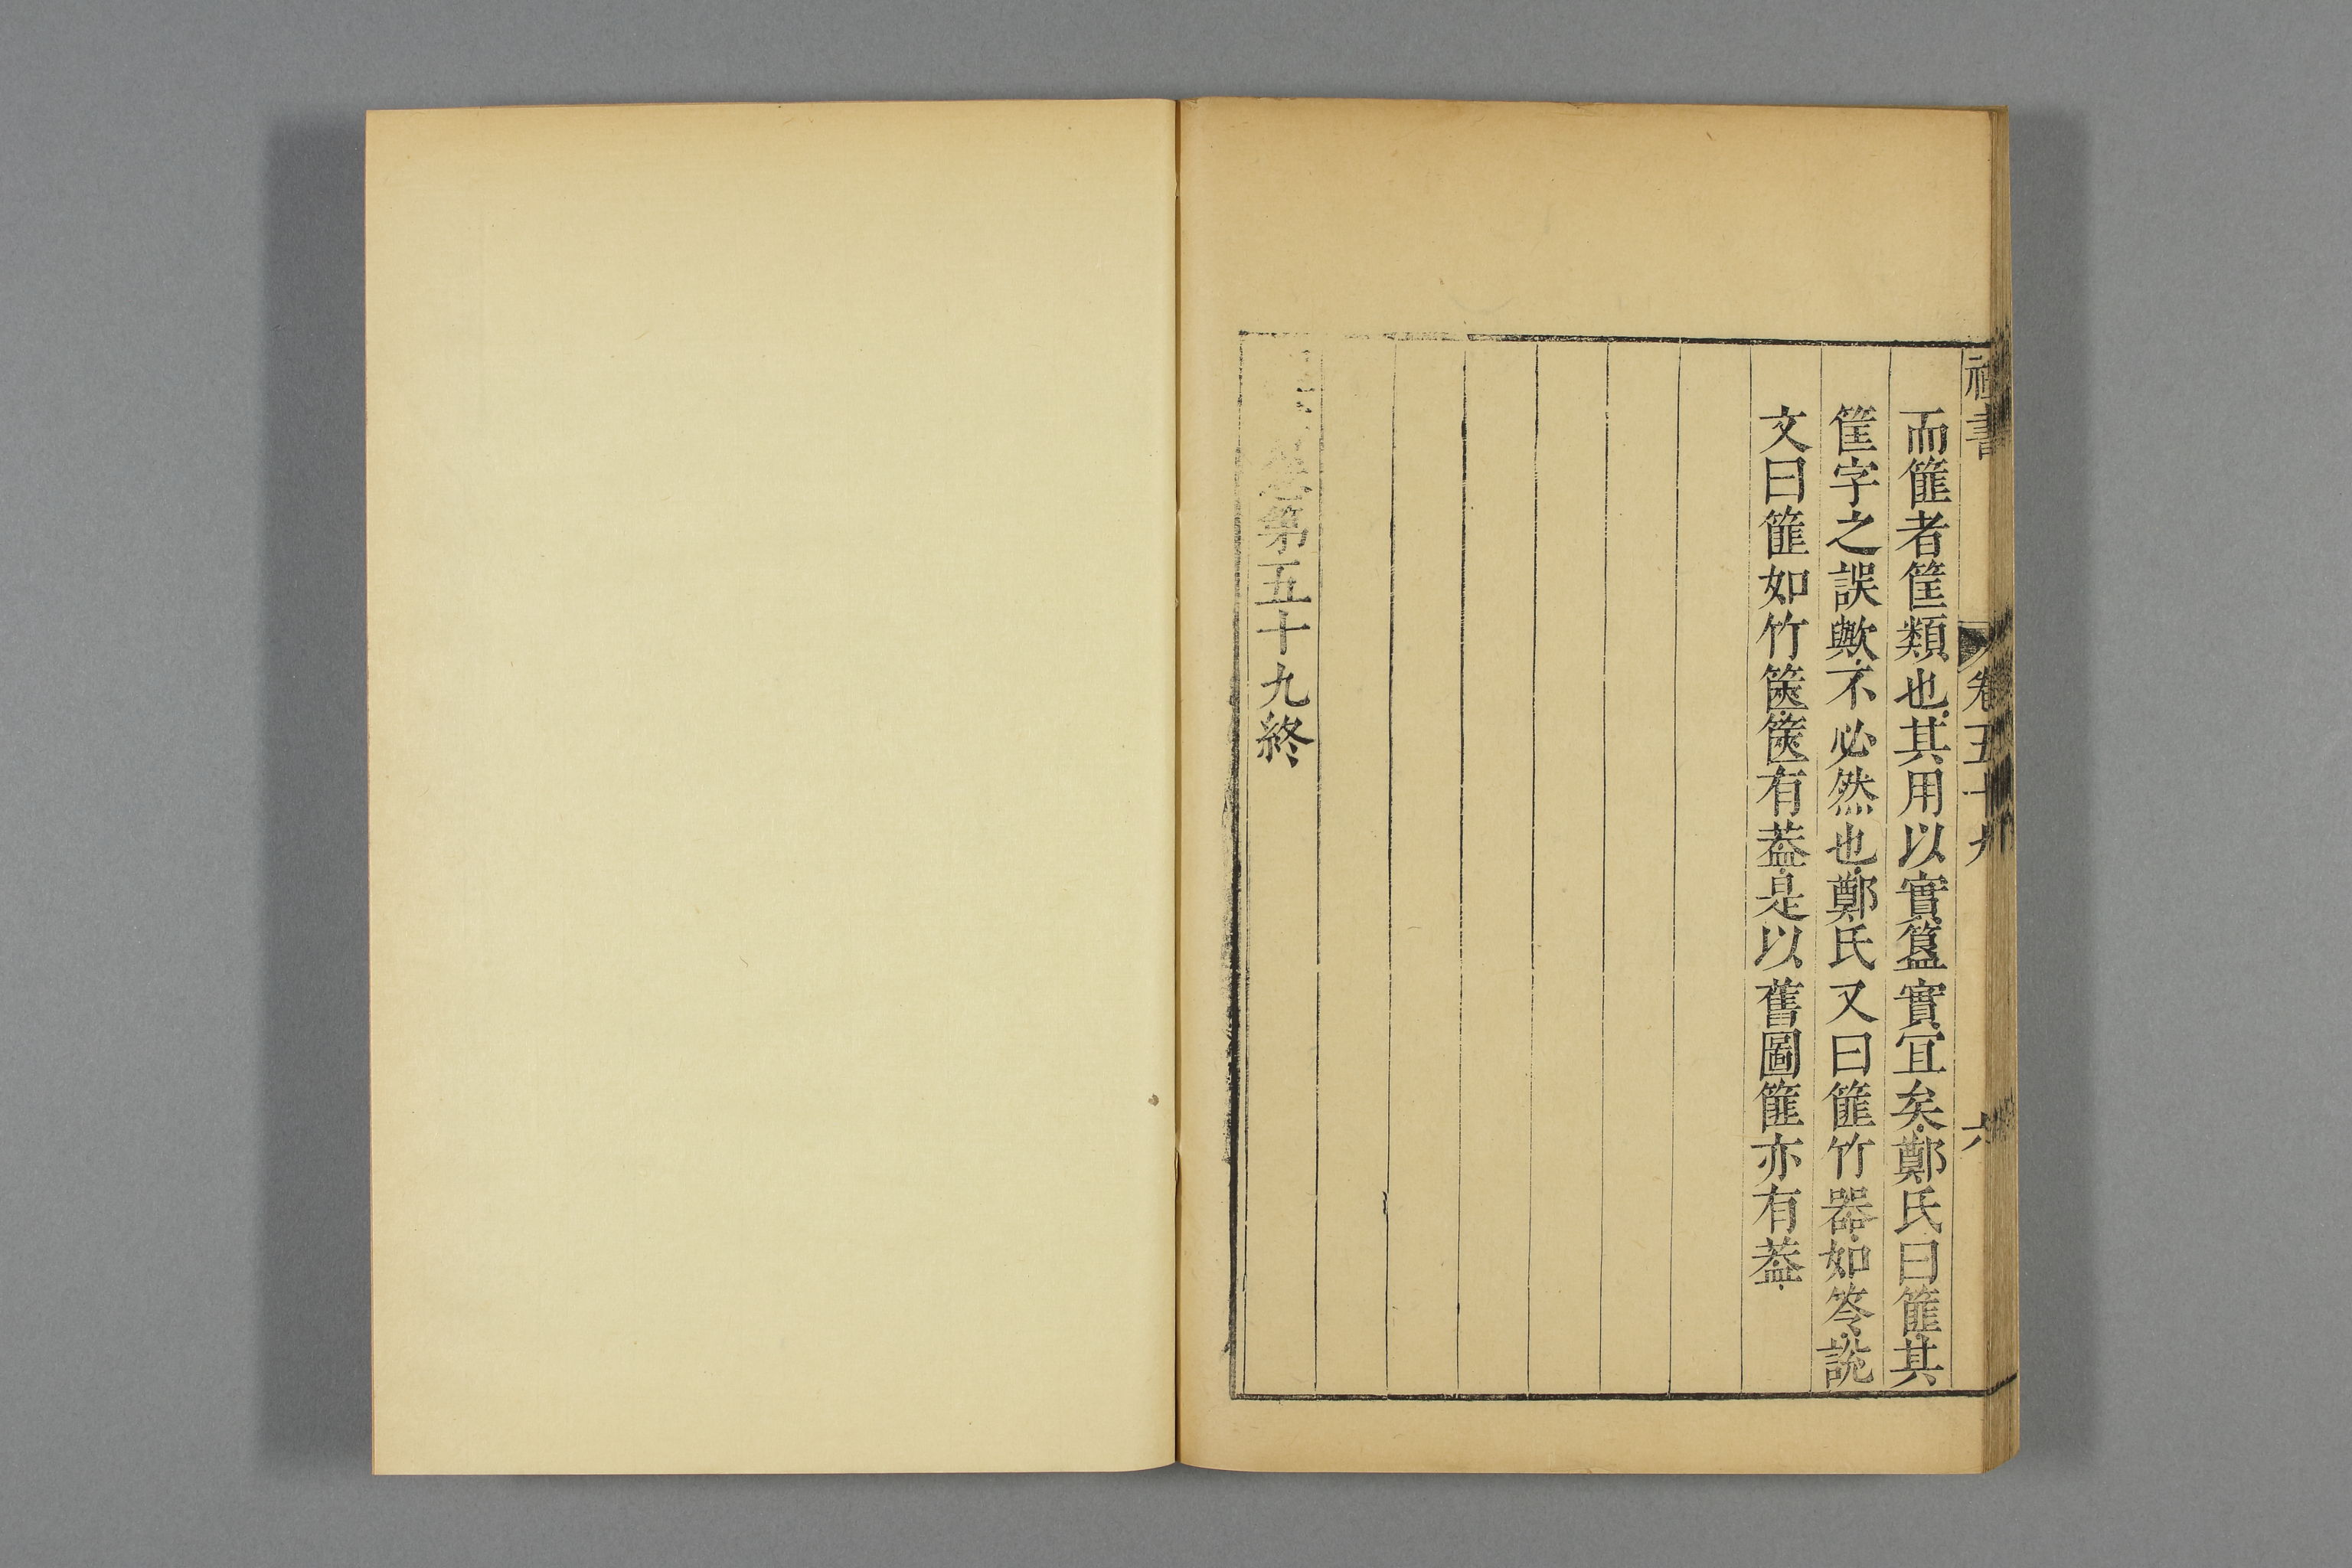 禮書 卷五十九 六
而篚者筐類也其用以實簋實宜矣鄭氏曰篚其
筐字之誤歟不必然也鄭氏又曰篚竹器如笭說
文曰篚如竹篋篋有葢是以舊圖篚亦有葢
卷第五十九終